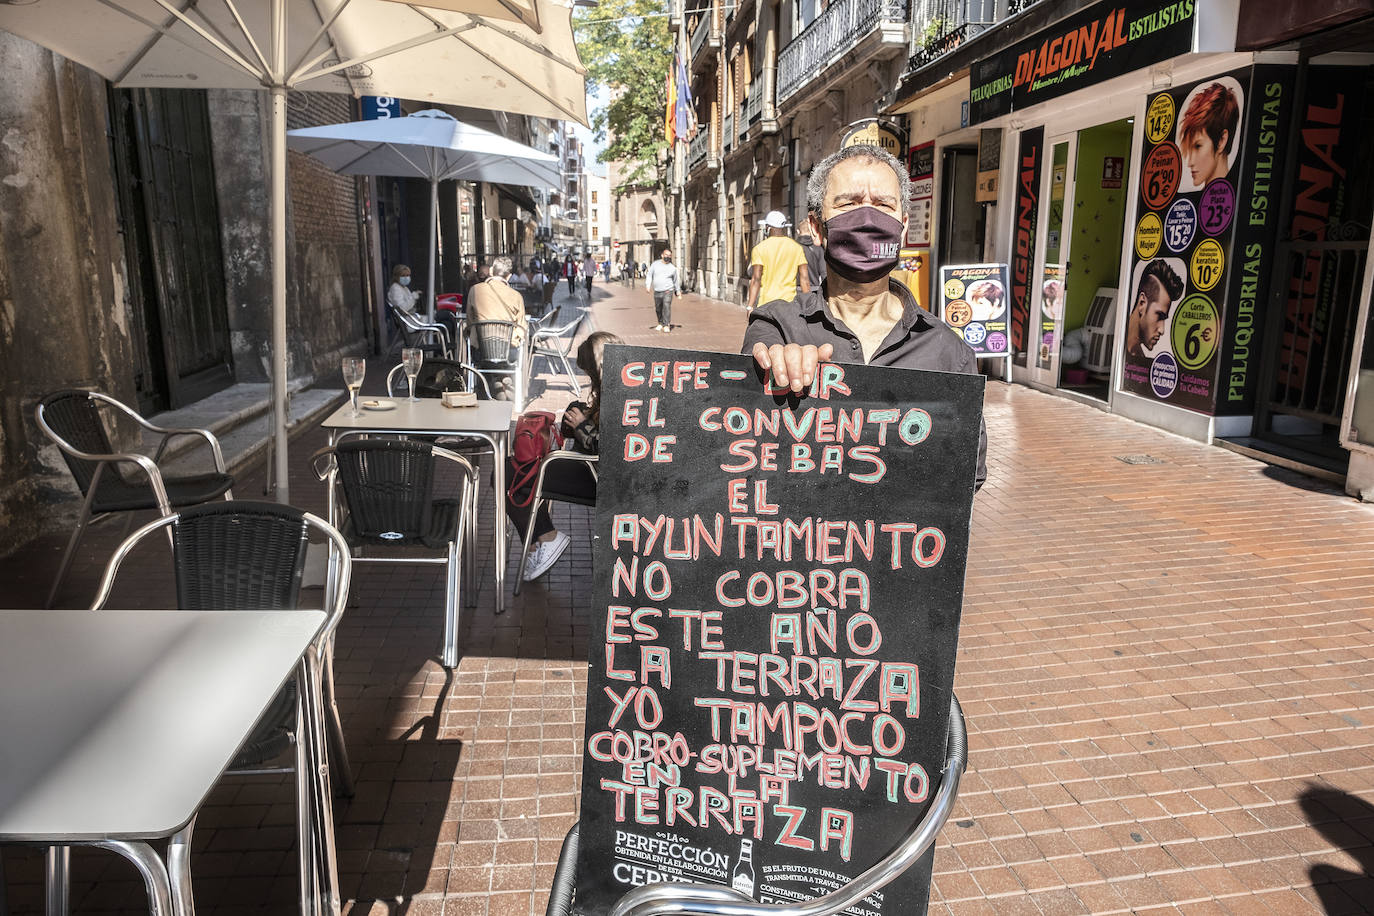 DIAGONAL
PELUQUERIAS
ESTILISTAS
Hombre/Mujer
Estrella
CAFE - BAR
EL CONVENTO
DE SEBAS
EL
AYUNTAMIENTO
NO COBRA
ESTE AÑO
LA TERRAZA
YO TAMPOCO
COBRO-SUPLEMENTO
EN LA
TERRAZA
LA
PERFECCIÓN
OBTENIDA EN LA ELABORACIÓN
DE ESTA
ES EL FRUTO DE UNA
TRANSMITIDA A TRAVÉS
Y
CONSTANTEMENTE
Estrella
DIAGONAL
14'20
Peinar
6'90
Mechas
Plata
23€
SEÑORAS
Teñir,
Lavar y Peinar
15'20
Hombre
Mujer
keratina
10€
Corte
CABALLEROS
6€
PRODUCTOS
CALIDAD
Cuidamos
Tu Cabello
PELUQUERIAS ESTILISTAS
DIAGONAL
DIAGONAL
Mujer